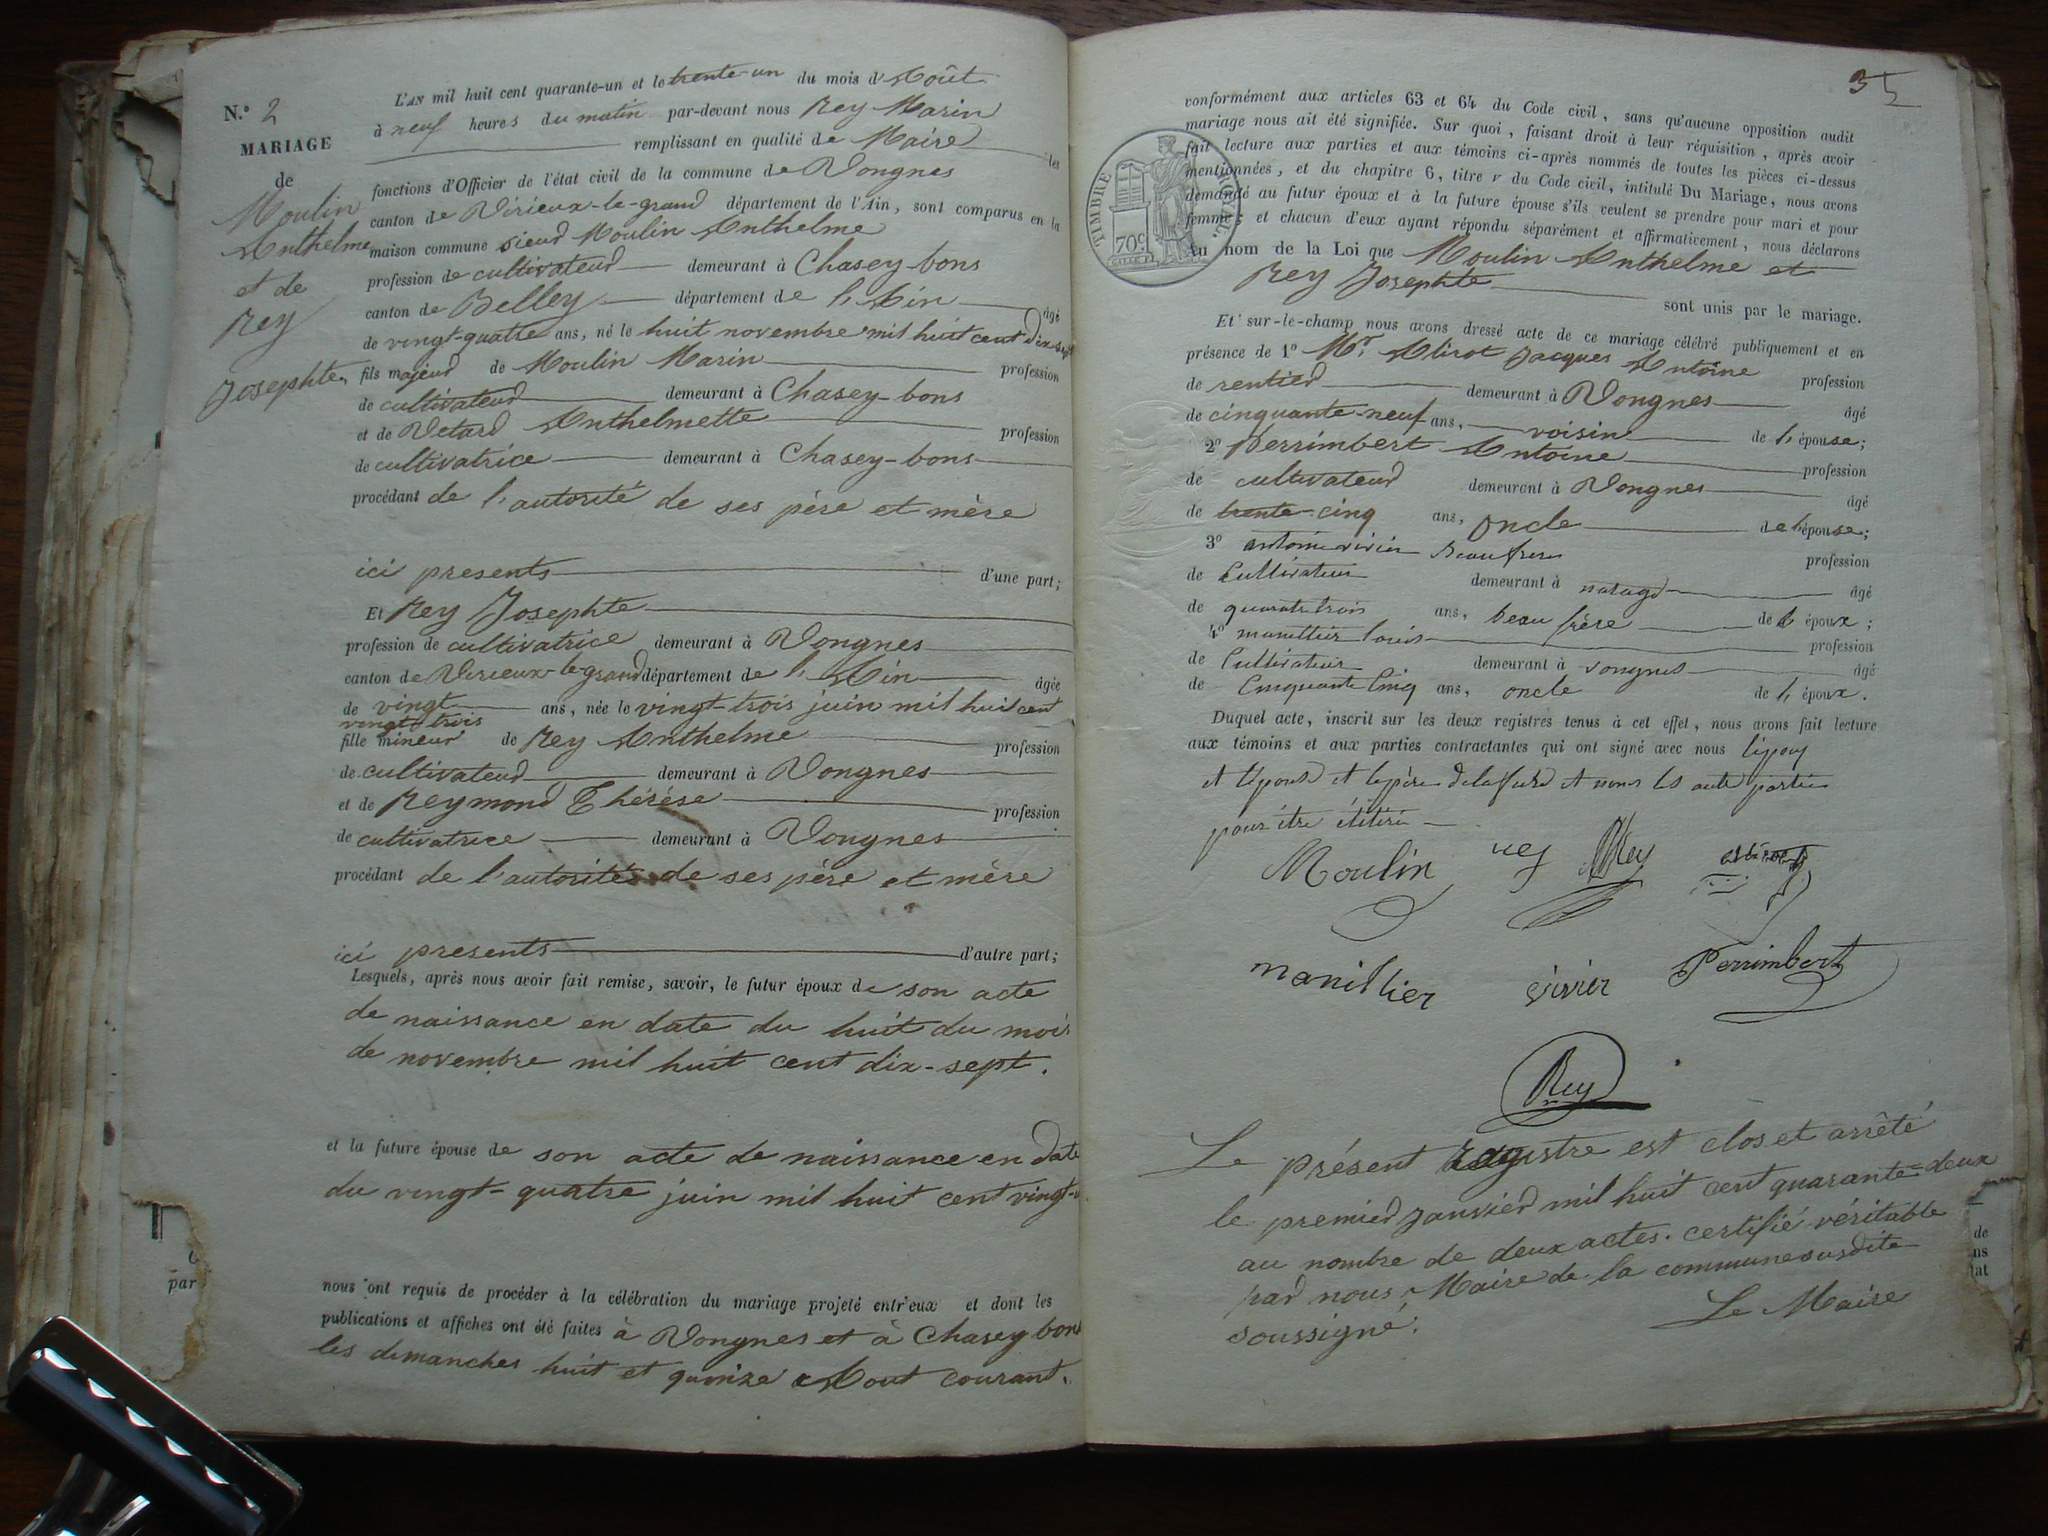 N.º 2
MARIAGE
de
Moulin
Anthelme
et de
Rey
Josephte.
L'AN mil huit cent quarante-un et le trente-un du mois d'Août
à neuf heures du matin par-devant nous Rey Marin
remplissant en qualité de Maire les
fonctions d'Officier de l'état civil de la commune de Vongnes
canton de Virieux-le-grand département de l'Ain, sont comparus en la
maison commune sieur Moulin Anthelme
profession de cultivateur demeurant à Chasey-bons
canton de Belley département de l'Ain âgé
de vingt-quatre ans, né le huit novembre mil huit cent dix-sept
fils majeur de Moulin Marin profession
de cultivateur demeurant à Chasey-bons
et de Vetard Anthelmette profession
de cultivatrice demeurant à Chasey-bons
procédant de l'autorité de ses père et mère
ici presents d'une part;
Et Rey Josephte
profession de cultivatrice demeurant à Vongnes
canton de Virieux-le-grand département de l'Ain âgée
de vingt ans, née le vingt-trois juin mil huit cent
vingt-trois
fille mineur de Rey Anthelme profession
de cultivateur demeurant à Vongnes
et de Reymond Thérése profession
de cultivatrice demeurant à Vongnes
procédant de l'autorité de ses père et mère
ici presents d'autre part;
Lesquels, après nous avoir fait remise, savoir, le futur époux de son acte
de naissance en date du huit du mois
de novembre mil huit cent dix-sept.
et la future épouse de son acte de naissance en date
du vingt-quatre juin mil huit cent vingt-
nous ont requis de procéder à la célébration du mariage projeté entr'eux et dont les
publications et affiches ont été faites à Vongnes et à Chasey bons
les dimanches huit et quinze Aout courant.
35
TIMBRE ROYAL.
70c
conformément aux articles 63 et 64 du Code civil, sans qu'aucune opposition audit
mariage nous ait été signifiée. Sur quoi, faisant droit à leur réquisition, après avoir
fait lecture aux parties et aux témoins ci-après nommés de toutes les pièces ci-dessus
mentionnées, et du chapitre 6, titre v du Code civil, intitulé Du Mariage, nous avons
demandé au futur époux et à la future épouse s'ils veulent se prendre pour mari et pour
femme; et chacun d'eux ayant répondu séparément et affirmativement, nous déclarons
Au nom de la Loi que Moulin Anthelme et
Rey Josephte sont unis par le mariage.
Et sur-le-champ nous avons dressé acte de ce mariage célébré publiquement et en
présence de 1º Mr. Jacques Antoine profession
de rentier demeurant à Vongnes âgé
de cinquante-neuf ans, voisin de l'épouse;
2º Perrimbert Antoine profession
de cultivateur demeurant à Vongnes âgé
de trente-cinq ans, oncle de l'épouse;
3º antoine vivier Beaufrere profession
de Cultivateur demeurant à âgé
de quarante trois ans, beau frère de l'époux;
4º manillier louis profession
de Cultivateur demeurant à vongnes âgé
de Cinquante Cinq ans, oncle de l'époux.
Duquel acte, inscrit sur les deux registres tenus à cet effet, nous avons fait lecture
aux témoins et aux parties contractantes qui ont signé avec nous l'epoux
et l'épouse et le père et nons les autre partie
pour être
Moulin rey Rey
manillier vivier Perrimbert
Rey
Le présent registre est clos et arrêté
le premier Janvier mil huit cent quarante-deux
au nombre de deux actes. certifié véritable
par nous Maire de la commune susdite
soussigné. Le Maire
par
de
ns
tat